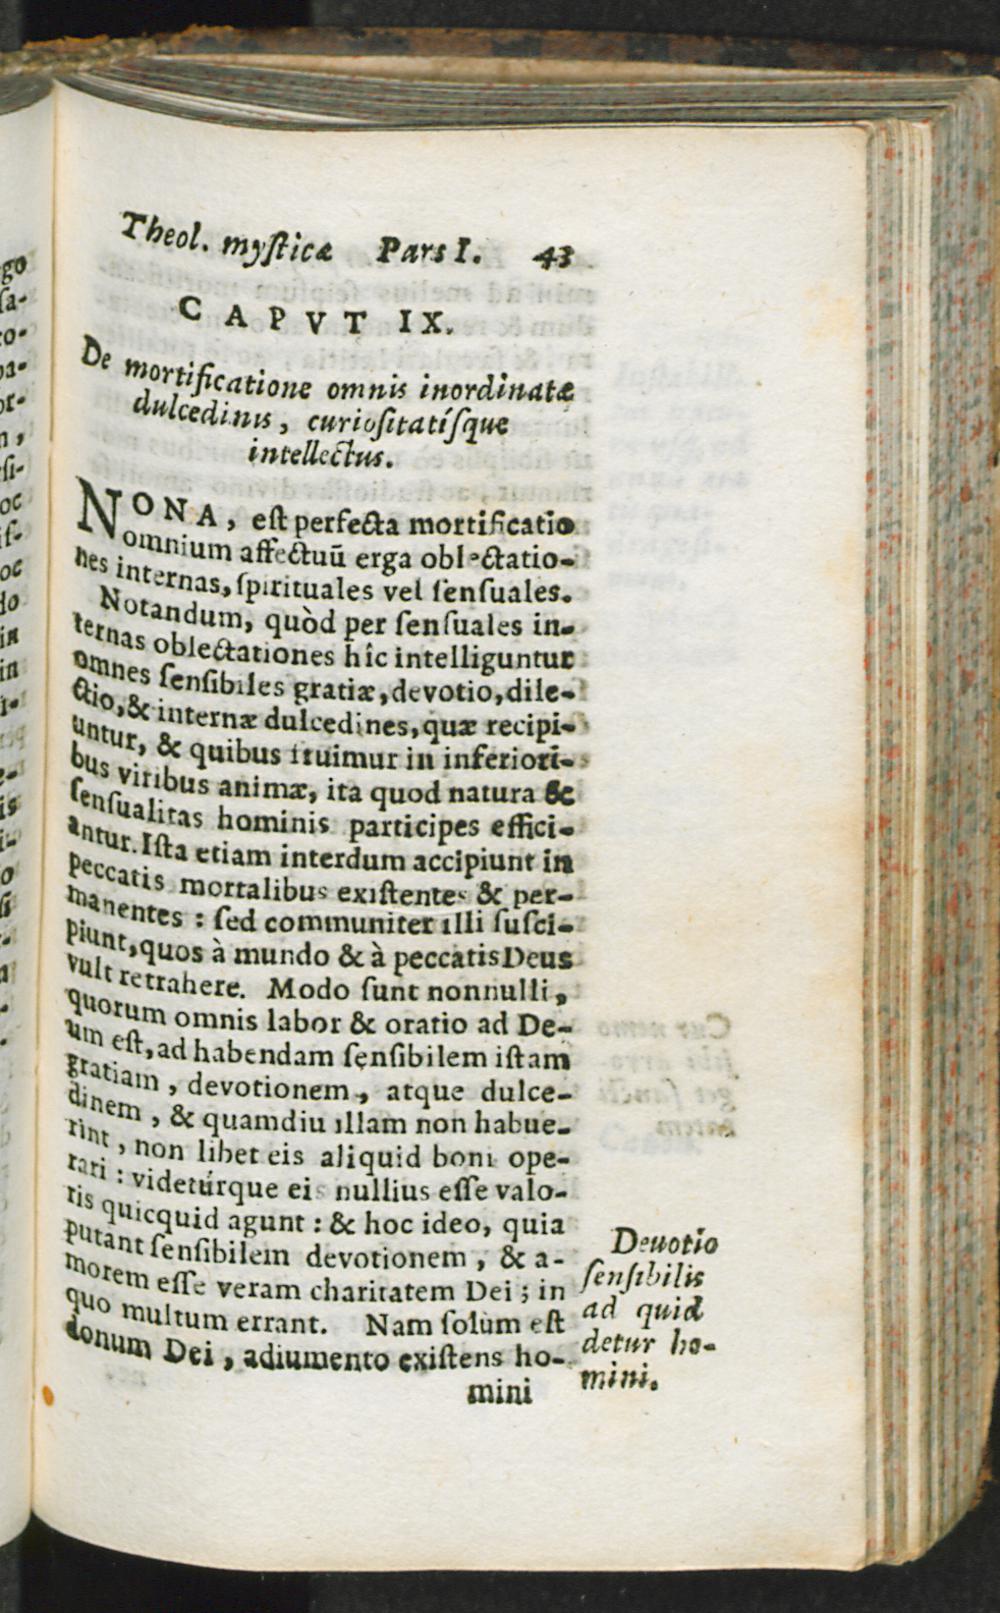 Theol. mysticæ Pars I. 43
CAPVT IX.
De mortificatione omnis inordinatæ
dulcedinis, curiositatísque
intellectus.
NONA, est perfecta mortificatio
omnium affectuū erga oblectatio-
nes internas, spirituales vel sensuales.
Notandum, quòd per sensuales in-
ternas oblectationes hîc intelliguntur
omnes sensibiles gratiæ, devotio, dile-
ctio, & internæ dulcedines, quæ recipi-
untur, & quibus fruimur in inferiori-
bus viribus animæ, ita quod natura &
sensualitas hominis participes effici-
antur. Ista etiam interdum accipiunt in
peccatis mortalibus existentes & per-
manentes : sed communiter illi susci-
piunt, quos à mundo & à peccatis Deus
vult retrahere. Modo sunt nonnulli,
quorum omnis labor & oratio ad De-
um est, ad habendam sensibilem istam
gratiam, devotionem, atque dulce-
dinem, & quamdiu illam non habue-
rint, non libet eis aliquid boni ope-
rari : videtúrque eis nullius esse valo-
ris quicquid agunt : & hoc ideo, quia
putant sensibilem devotionem, & a-
morem esse veram charitatem Dei ; in
quo multum errant. Nam solùm est
donum Dei, adiumento existens ho-
mini
Devotio
sensibilis
ad quid
detur ho-
mini.